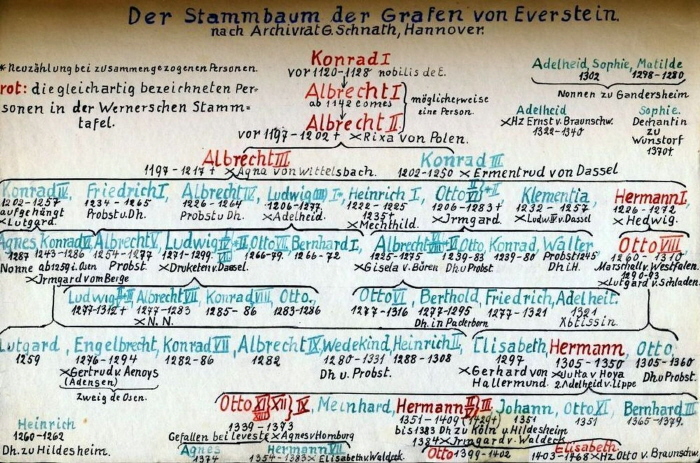 Der Stammbaum der Grafen von Everstein.
nach Archivrat G. Schnath, Hannover.
* Neuzählung bei zusammengezogenen Personen.
rot: die gleichartig bezeichneten Per-
sonen in der Wernerschen Stamm-
tafel.
Konrad I
vor 1120-1128 nobilis de E.
Albrecht I
ab 1142 comes
Albrecht II
möglicherweise
eine Person.
vor 1197-1202 + × Rixa von Polen.
Adelheid, Sophie, Matilde
1302 1298-1280
Nonnen zu Gandersheim
Adelheid
× Hz Ernst v. Braunschw.
1322-1340
Sophie.
Dechantin
zu
Wunstorf
1370+
Albrecht III
1197-1217 + × Agna von Wittelsbach.
Konrad III
1202-1250 × Ermentrud von Dassel
Konrad IV, Friedrich I, Albrecht IV, Ludwig I, Heinrich I, Otto, Klementia, Hermann I,
1202-1257 aufgehängt × Lutgard.
1234-1265 Probst u Dh.
1226-1264 Probst u Dh.
1206-1277 × Adelheid.
1222-1225 1235+ × Mechthild.
1206-1283+ × Irmgard.
1232-1257 × Ludw. IV v. Dassel
1226-1272 × Hedwig.
Agnes Konrad Albrecht V, Ludwig Otto Bernhard I,
1287 Nonne
1243-1286 ab 1259 i. Osen × Irmgard vom Berge
1254-1277 Probst.
1271-1299 × Druketen v. Dassel.
1266-79, 1266-72
Albrecht Otto, Konrad, Walter
1225-1275 × Gisela v. Büren
1239-83 Dh u Probst
1239-80
Probst 1245 Dh i. H.
Otto VIII
1260-1310
Marschall v. Westfalen
1290-93
× Lutgard v. Schladen.
Ludwig Albrecht VII, Konrad VIII, Otto.
1277-1312+ 1277-1283 1285-86 1283-1286
× N. N.
Otto VI, Berthold, Friedrich, Adelheit.
1277-1316 1277-1295 1277-1321 1321
Dh. in Paderborn Äbtissin
Lutgard, Engelbrecht, Konrad VII, Albrecht IX, Wedekind, Heinrich II, Elisabeth, Hermann, Otto,
1259 1276-1294 1282-86 1282 1280-1331 1288-1308 1297 1305-1350 1305-1360
× Gertrud v. Aenoys
(Adensen)
Zweig de Osen.
Dh. u. Probst.
× Gerhard von
Hallermund
× Jutta v. Hoya
2 Adelheid v. Lippe
Dh u Probst
Otto Meinhard, Hermann Johann, Otto XI, Bernhard III
1339-1373 1351-1409 (1429+) 1351 1351 1365-1379.
Gefallen bei Leveste × Agnes v Homburg
bis 1383 Dh zu Köln u Hildesheim
1384 × Irmgard v. Waldeck
Heinrich
1260-1262
Dh. zu Hildesheim.
Agnes Hermann VII
1374 1354-1383 × Elisabeth v. Waldeck.
Otto 1399-1402
Elisabeth
1403-1468 × Hz. Otto v. Braunschw